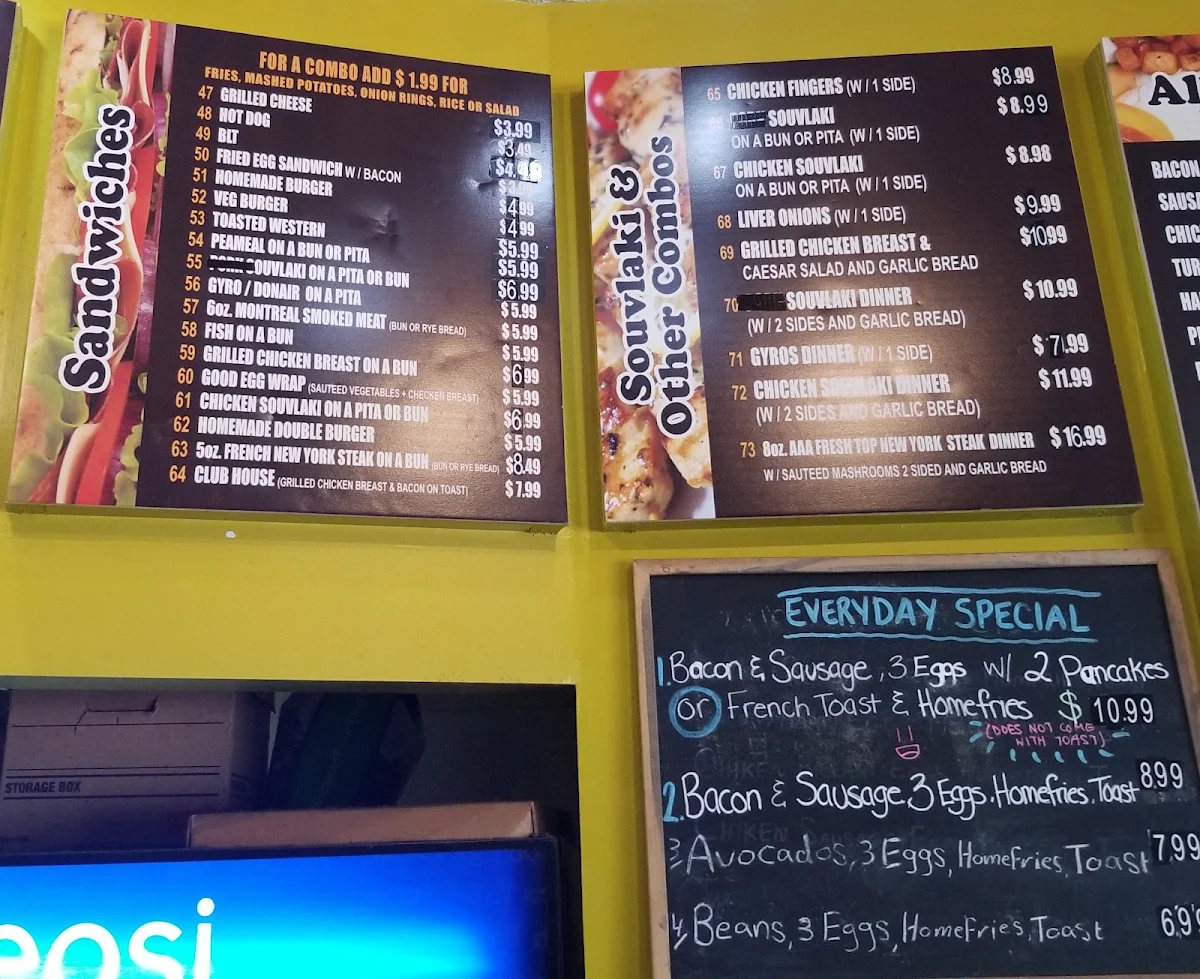 Sandwiches
FOR A COMBO ADD $ 1.99 FOR
FRIES, MASHED POTATOES, ONION RINGS, RICE OR SALAD
47 GRILLED CHEESE $3.99
48 HOT DOG $3.49
49 BLT $4.
50 FRIED EGG SANDWICH W / BACON
51 HOMEMADE BURGER $4.99
52 VEG BURGER $4.99
53 TOASTED WESTERN $5.99
54 PEAMEAL ON A BUN OR PITA $5.99
55 OUVLAKI ON A PITA OR BUN $6.99
56 GYRO / DONAIR ON A PITA $5.99
57 6oz. MONTREAL SMOKED MEAT (BUN OR RYE BREAD) $5.99
58 FISH ON A BUN $5.99
59 GRILLED CHICKEN BREAST ON A BUN $6.99
60 GOOD EGG WRAP (SAUTEED VEGETABLES + CHECKEN BREAST) $5.99
61 CHICKEN SOUVLAKI ON A PITA OR BUN $6.99
62 HOMEMADE DOUBLE BURGER $5.99
63 5oz. FRENCH NEW YORK STEAK ON A BUN (BUN OR RYE BREAD) $8.49
64 CLUB HOUSE (GRILLED CHICKEN BREAST & BACON ON TOAST) $7.99
Souvlaki &
Other Combos
65 CHICKEN FINGERS (W / 1 SIDE) $8.99
SOUVLAKI $8.99
ON A BUN OR PITA (W / 1 SIDE)
67 CHICKEN SOUVLAKI $8.98
ON A BUN OR PITA (W / 1 SIDE)
68 LIVER ONIONS (W / 1 SIDE) $9.99
69 GRILLED CHICKEN BREAST & $10.99
CAESAR SALAD AND GARLIC BREAD
70 SOUVLAKI DINNER $10.99
(W / 2 SIDES AND GARLIC BREAD)
71 GYROS DINNER (W / 1 SIDE) $7.99
72 CHICKEN SOUVLAKI DINNER $11.99
(W / 2 SIDES AND GARLIC BREAD)
73 8oz. AAA FRESH TOP NEW YORK STEAK DINNER $16.99
W / SAUTEED MASHROOMS 2 SIDED AND GARLIC BREAD
BACON
EVERYDAY SPECIAL
1. Bacon & Sausage, 3 Eggs w/ 2 Pancakes
or French Toast & Homefries $ 10.99
(DOES NOT COME
WITH TOAST)
2. Bacon & Sausage. 3 Eggs. Homefries. Toast 8.99
3 Avocados, 3 Eggs, Homefries, Toast 7.99
4 Beans, 3 Eggs, Homefries, Toast
STORAGE BOX
epsi